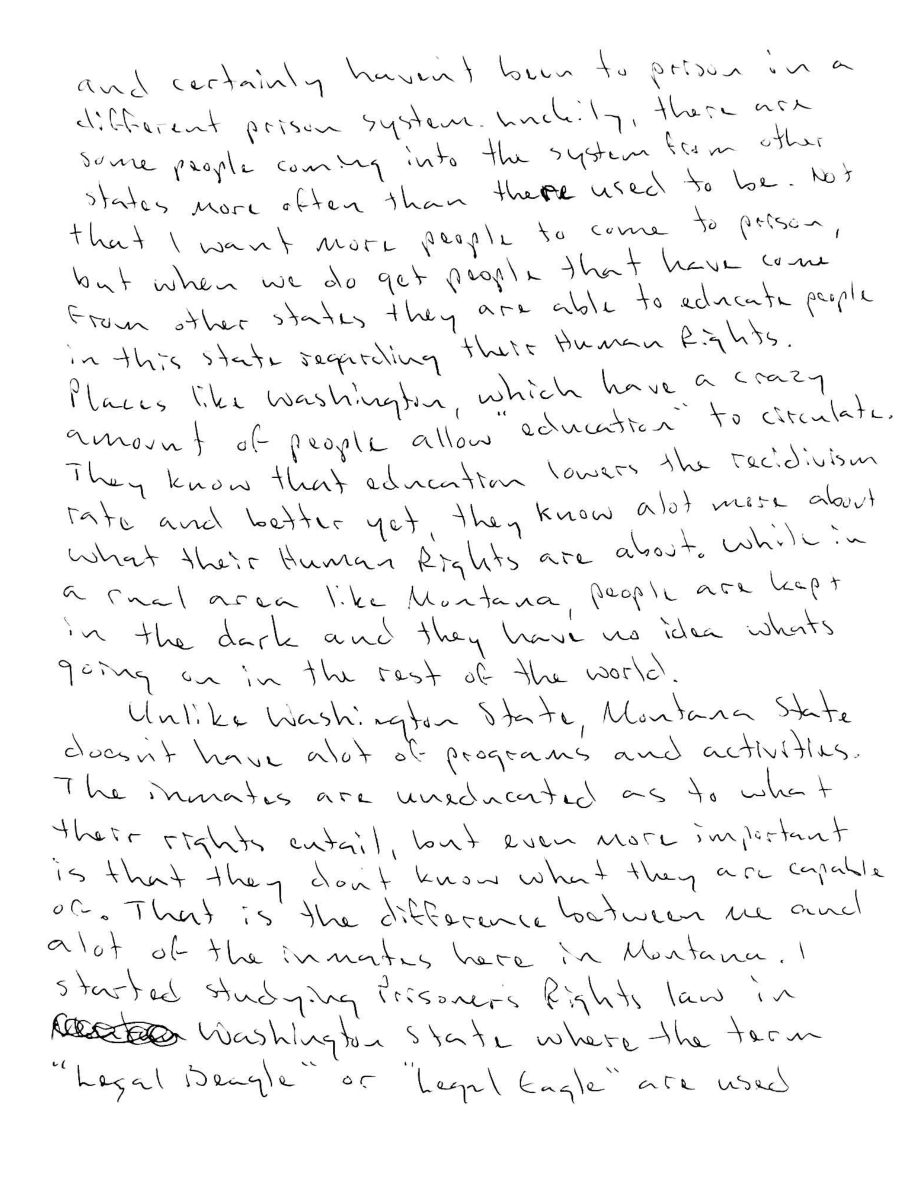 and certainly haven't been to prison in a
different prison system. Luckily, there are
some people coming into the system from other
states more often than there used to be. Not
that I want more people to come to prison,
but when we do get people that have come
from other states they are able to educate people
in this state regarding their Human Rights.
Places like Washington, which have a crazy
amount of people allow "education" to circulate.
They know that education lowers the recidivism
rate and better yet, they know alot more about
what their Human Rights are about. While in
a rual area like Montana, people are kept
in the dark and they have no idea whats
going on in the rest of the world.
Unlike Washington State, Montana State
doesn't have alot of programs and activities.
The inmates are uneducated as to what
their rights entail, but even more important
is that they don't know what they are capable
of. That is the difference between me and
alot of the inmates here in Montana. I
started studying Prisoner's Rights law in
Washington State where the term
"Legal Beagle" or "Legal Eagle" are used